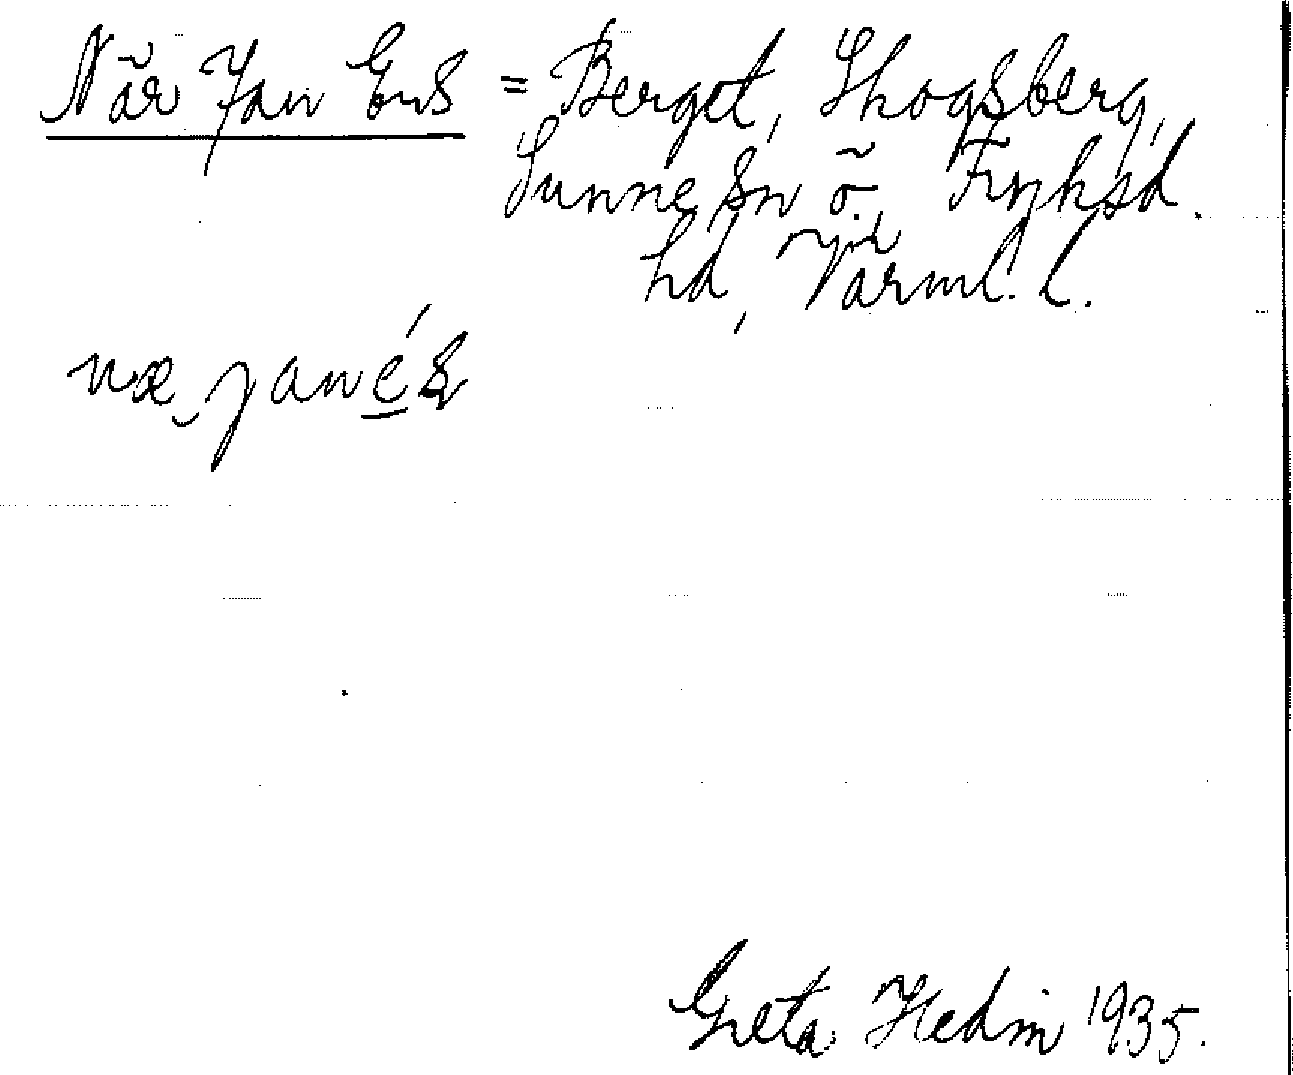 När Jan Ens = Berget, Skogsberg,
Sunne sn ö. Fryksd.
hd, Värml. l.
næ janés
Greta Hedin 1935.